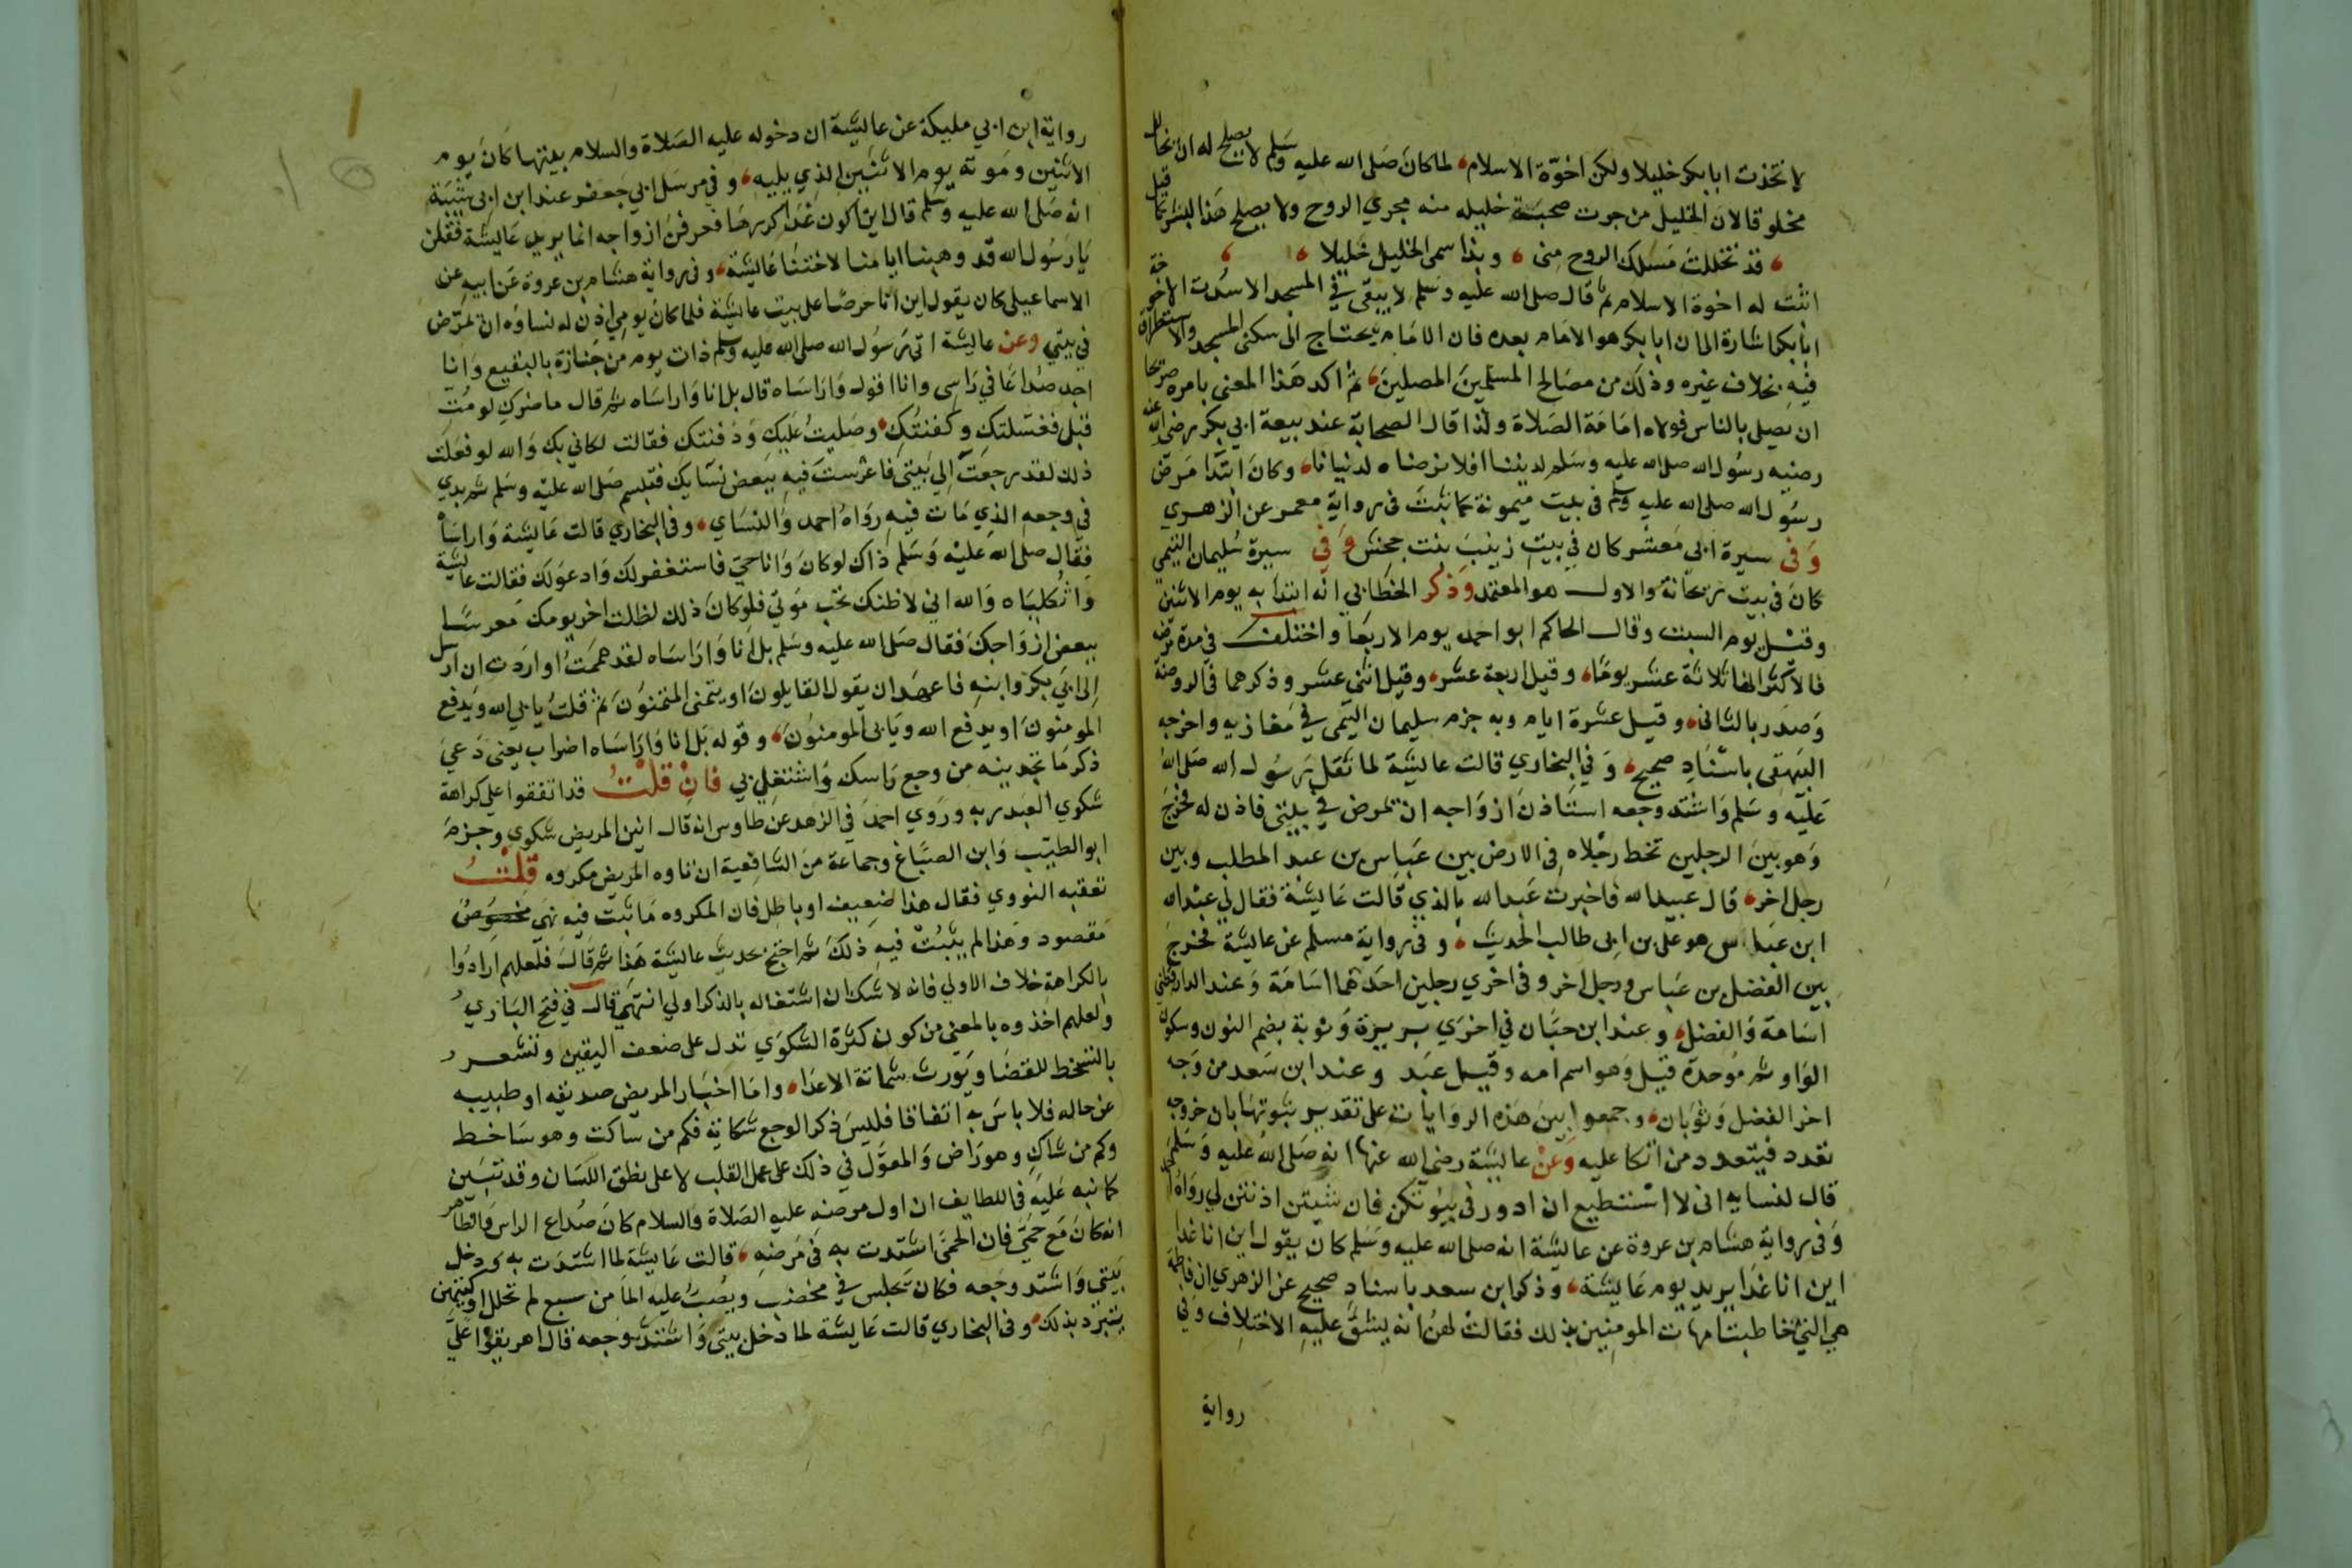 لاتخذت ابا بكر خليلا ولكن اخوّة الاسلام لما كان صلى الله عليه وسلم لا يصلح له ان يخالل
مخلوقا لان الخليل من جرت صحبة خليله منه مجري الروح ولا يصلح هذا لبشر كما قيل
قد تخللت مسلك الروح منى وبذا سمى الخليل خليلا
اثبت له اخوة الاسلام ثم قال صلى الله عليه وسلم لا يبقى في المسجد الا سدت الا خوخة
ابا بكر اشارة الى ان ابا بكر هو الامام بعده فان الامام يحتاج الى سكنى المسجد والاستطراق
فيه بخلاف غيره وذلك من مصالح المسلمين المصلين ثم اكد هذا المعنى بامره صريحا
ان يصلى بالناس فولاه امامة الصلاة ولذا قال الصحابة عند بيعة ابي بكر رضى الله عنه
رضيه رسول الله صلى الله عليه وسلم لديننا افلا نرضاه لدنيانا وكان ابتدا مرض
رسول الله صلى الله عليه وسلم فى بيت ميمونة كما ثبت فى رواية معمر عن الزهري
وفى سيرة ابى معشر كان في بيت زينب بنت جحش وفي سيرة سليمان التيمى
كان فى بيت ريحانة والاول هو المعتمد وذكر الخطابي انه ابتدا به يوم الاثنين
وقيل يوم السبت وقال الحاكم ابو احمد يوم الاربعا واختلف فى مدة مرضه
فالاكثر انها ثلاثة عشر يوما وقيل اربعة عشر وقيل اثنى عشر وذكرهما فى الروضة
وصدر بالثانى وقيل عشرة ايام وبه جزم سليمان التيمى في مغازيه واخرجه
البيهقى باسناد صحيح وفي البخاري قالت عايشة لما ثقل برسول الله صلى الله
عليه وسلم واشتد وجعه استاذن ازواجه ان يمرض في بيتى فاذن له فخرج
وهو بين الرجلين تخط رجلاه فى الارض بين عباس بن عبد المطلب وبين
رجل اخر قال عبيد الله فاخبرت عبد الله بالذي قالت عايشة فقال لى عبد الله
ابن عباس هو على بن ابى طالب الحديث وفى رواية مسلم عن عايشة فخرج
بين الفضل بن عباس ورجل اخر وفى اخري رجلين احدهما اسامة وعند الدارقطنى
اسامة والفضل وعند ابن حبان في اخري بريرة ونوبة بضم النون وسكون
الواو ثم موحدة قيل وهو اسم امه وقيل عبد وعند ابن سعد من وجه
اخر الفضل وثوبان وجمعوا بين هذه الروايات على تقدير ثبوتها بان خروجه
تعدد فيتعدد من اتكا عليه وعن عايشة رضى الله عنها انه صلى الله عليه وسلم
قال لنسايه انى لا استطيع ان ادور فى بيوتكن فان شيتن اذنتن لي رواه احمد
وفى رواية هشام بن عروة عن عايشة انه صلى الله عليه وسلم كان يقول اين انا غدا
اين انا غدا يريد يوم عايشة وذكر ابن سعد باسناد صحيح عن الزهري ان فاطمة
هي التى خاطبت امهات المومنين بذلك فقالت لهن انه يشق عليه الاختلاف وفي
رواية
رواية ابن ابي مليكة عن عايشة ان دخوله عليه الصلاة والسلام بيتها كان يوم
الاثنين وموته يوم الاثنين الذي يليه وفى مرسل ابي جعفر عند ابن ابى شيبة
انه صلى الله عليه وسلم قال اين اكون غدا كررها فعرفن ازواجه انما يريد عايشة فقلن
يا رسول الله قد وهبنا ايامنا لاختنا عايشة وفى رواية هشام بن عروة عن ابيه عن
الاسماعيلى كان يقول اين انا حرصا على بيت عايشة فلما كان يومي اذن له نساؤه ان يمرض
في بيتي وعن عايشة اتى رسول الله صلى الله عليه وسلم ذات يوم من جنازة بالبقيع وانا
اجد صداعا في راسى وانا اقول واراساه قال بل انا واراساه ثم قال ما ضرك لو مت
قبلى فغسلتك وكفنتك وصليت عليك ودفنتك فقالت لكاني بك والله لو فعلت
ذلك لقد رجعت الي بيتى فاعرست فيه ببعض نسايك فتبسم صلى الله عليه وسلم ثم بدي
في وجعه الذي مات فيه رواه احمد والنساي وفى البخاري قالت عايشة واراساه
فقال صلى الله عليه وسلم ذاك لو كان وانا حي فاستغفر لك وادعو لك فقالت عايشة
واثكلياه والله اني لاظنك تحب موتي فلو كان ذلك لظلت اخر يومك معرسا
ببعض ازواجك فقال صلى الله عليه وسلم بل انا واراساه لقد هممت او اردت ان ارسل
الى ابي بكر وابنه فاعهد ان يقول القايلون او يتمنى المتمنون ثم قلت يابى الله ويدفع
المومنون او يدفع الله ويابى المومنون وقوله بل انا واراساه اضراب يعنى دعي
ذكر ما تجدينه من وجع راسك واشتغلي بي فان قلت قد اتفقوا على كراهة
شكوي العبد ربه وروي احمد في الزهد عن طاوس انه قال انين المريض شكوي وجزم
ابو الطيب وابن الصباغ وجماعة من الشافعية ان تاوه المريض مكروه قلت
تعقبه النووي فقال هذا ضعيف او باطل فان المكروه ما ثبت فيه نهى مخصوص
مقصود وهذا لم يثبت فيه ذلك ثم احتج بحديث عايشة هذا ثم قال فلعلهم ارادوا
بالكراهة خلاف الاولي فانه لا شك ان اشتغاله بالذكر اولي انتهى قال في فتح الباري
ولعلهم اخذوه بالمعنى من كون كثرة الشكوي تدل على ضعف اليقين وتشعر
بالتسخط للقضا ويورث شماتة الاعدا واما اخبار المريض صديقه او طبيبه
عن حاله فلا باس به اتفاقا فليس ذكر الوجع شكاية فكم من ساكت وهو ساخط
وكم من شاك وهو راض والمعول في ذلك على عمل القلب لا على نطق اللسان وقد تبين
كما نبه عليه فى اللطايف ان اول مرضه عليه الصلاة والسلام كان صداع الراس والظاهر
انه كان مع حمى فان الحمى اشتدت به فى مرضه قالت عايشة لما اشتدت به ودخل
بيتي واشتد وجعه فكان يجلس في مخضب ويصب عليه الما من سبع لم تحلل اوكيتهن
يتبرد بذلك وفى البخاري قالت عايشة لما دخل بيتى واشتد وجعه قال اهريقوا علي